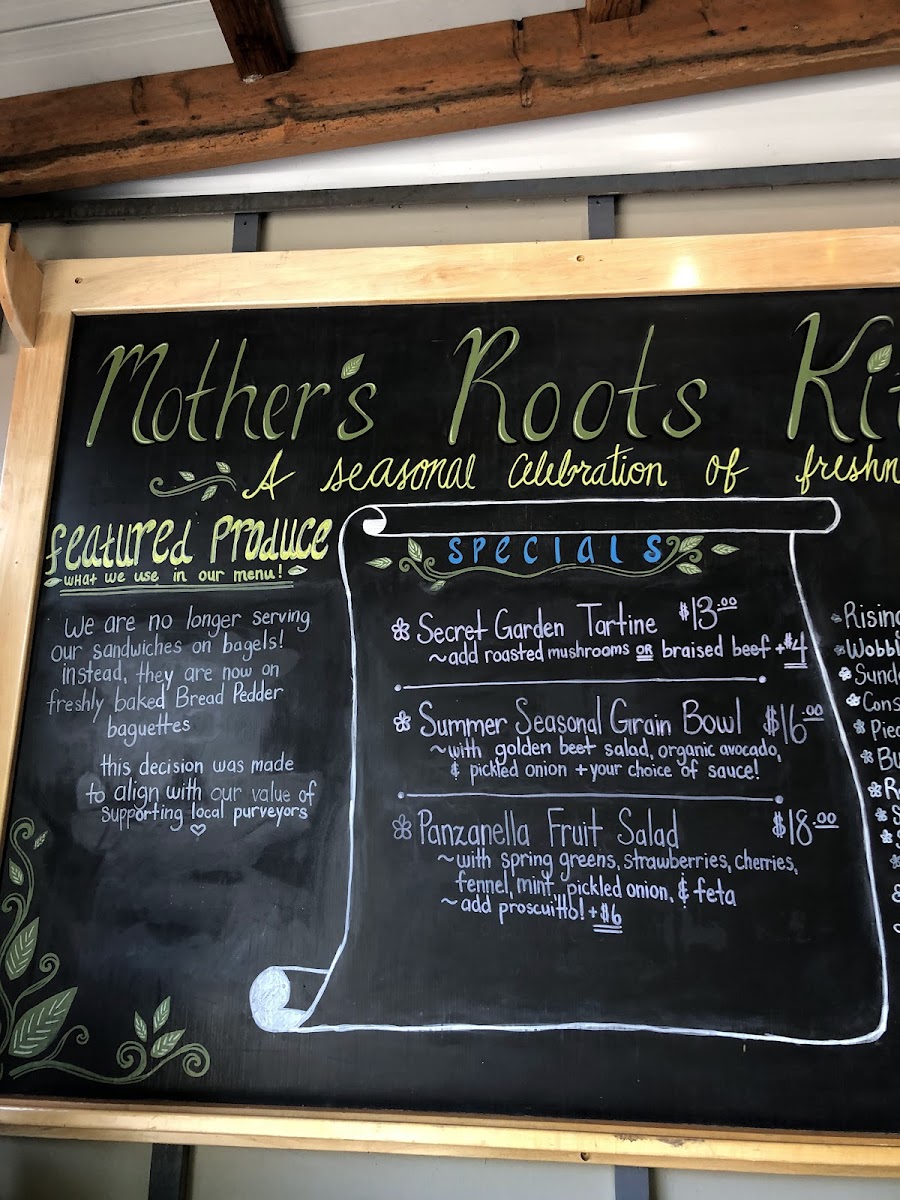 Mother's Roots
A seasonal celebration of
featured Produce
what we use in our menu!
We are no longer serving
our sandwiches on bagels!
instead, they are now on
freshly baked Bread Pedder
baguettes
this decision was made
to align with our value of
supporting local purveyors
SPECIALS
Secret Garden Tartine $13.00
~add roasted mushrooms OR braised beef +$4
Summer Seasonal Grain Bowl $16.00
~with golden beet salad, organic avocado,
& pickled onion + your choice of sauce!
Panzanella Fruit Salad $18.00
~with spring greens, strawberries, cherries,
fennel, mint, pickled onion, & feta
~add proscuitto! +$6